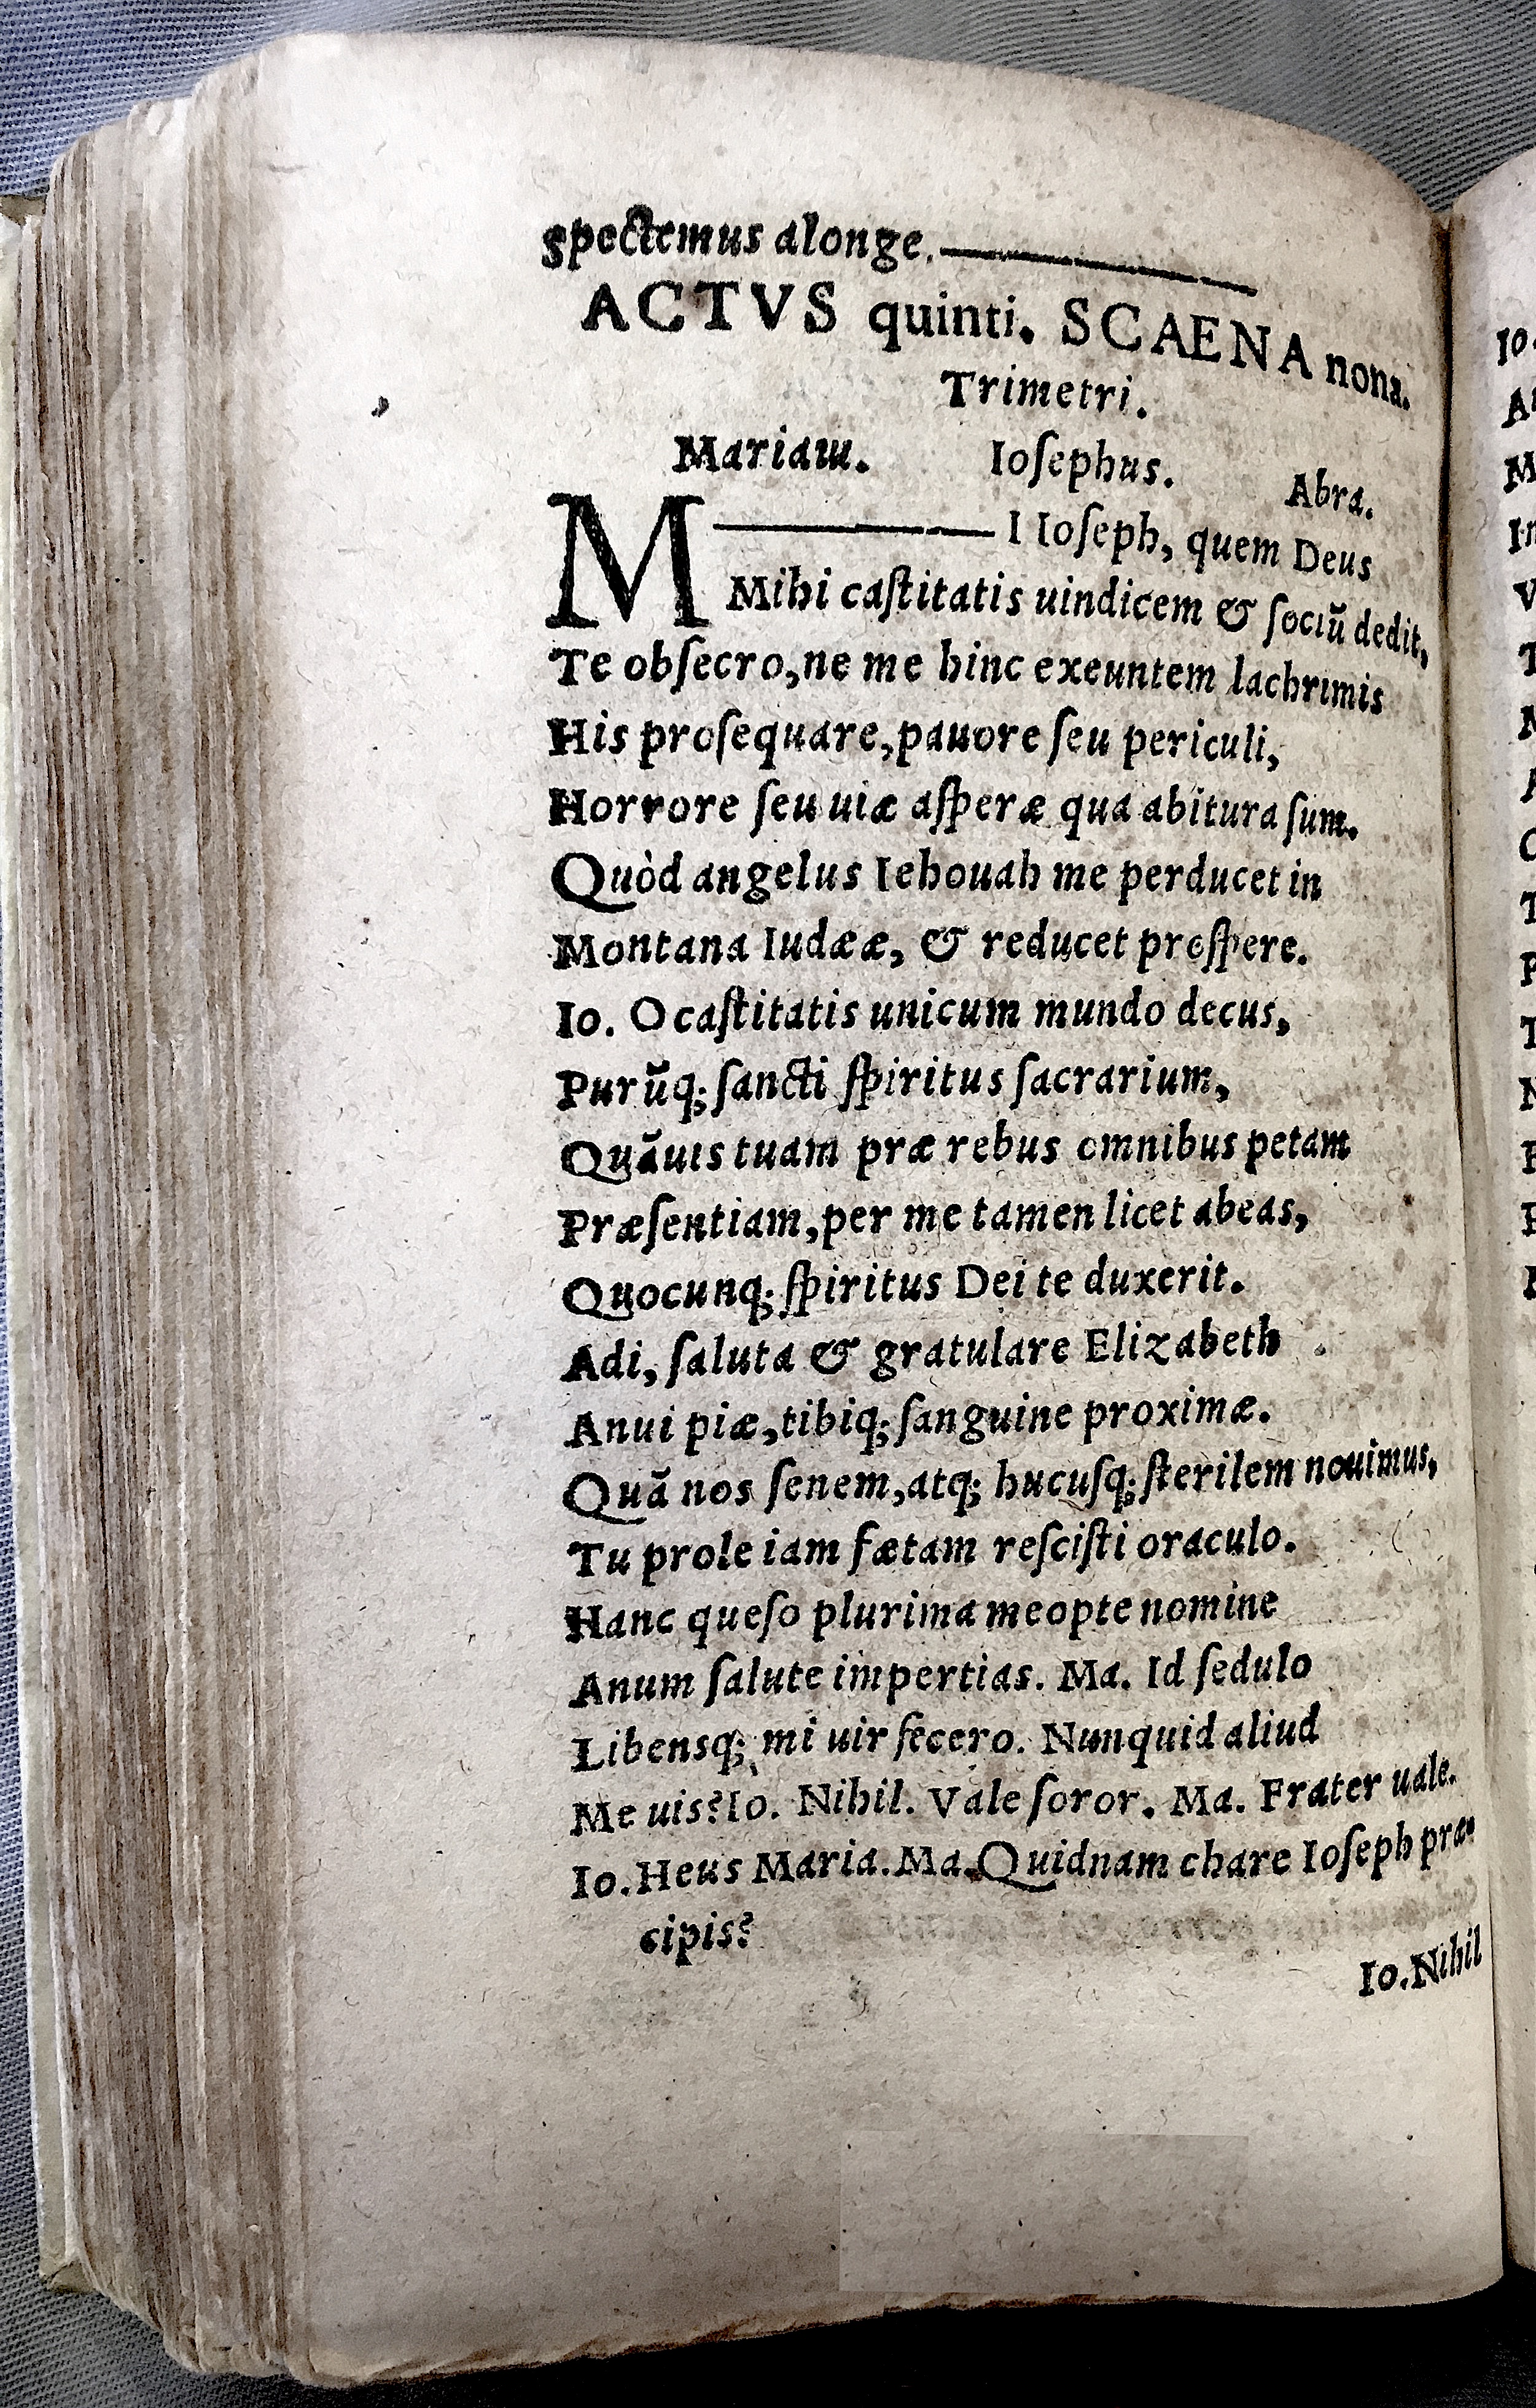 spectemus alonge.
ACTVS quinti. SCAENA nona.
Trimetri.
Mariam. Ioſephus. Abra.
M I Ioſeph, quem Deus
Mihi caſtitatis uindicem & ſociũ dedit,
Te obſecro, ne me hinc exeuntem lachrimis
His proſequare, pauore ſeu periculi,
Horrore ſeu uiæ aſperæ qua abitura ſum.
Quòd angelus Iehouah me perducet in
Montana Iudææ, & reducet proſpere.
Io. O caſtitatis unicum mundo decus,
Purũq; ſancti ſpiritus ſacrarium,
Quãuis tuam præ rebus omnibus petam
Præſentiam, per me tamen licet abeas,
Quocunq; ſpiritus Dei te duxerit.
Adi, ſaluta & gratulare Elizabeth
Anui piæ, tibiq; ſanguine proximæ.
Quã nos ſenem, atq; hucuſq; ſterilem nouimus,
Tu prole iam fætam reſciſti oraculo.
Hanc queſo plurima meopte nomine
Anum ſalute impertias. Ma. Id ſedulo
Libensq; mi uir fecero. Nunquid aliud
Me uis? Io. Nihil. Vale ſoror. Ma. Frater uale.
Io. Heus Maria. Ma. Quidnam chare Ioſeph præ-
cipis?
Io. Nihil